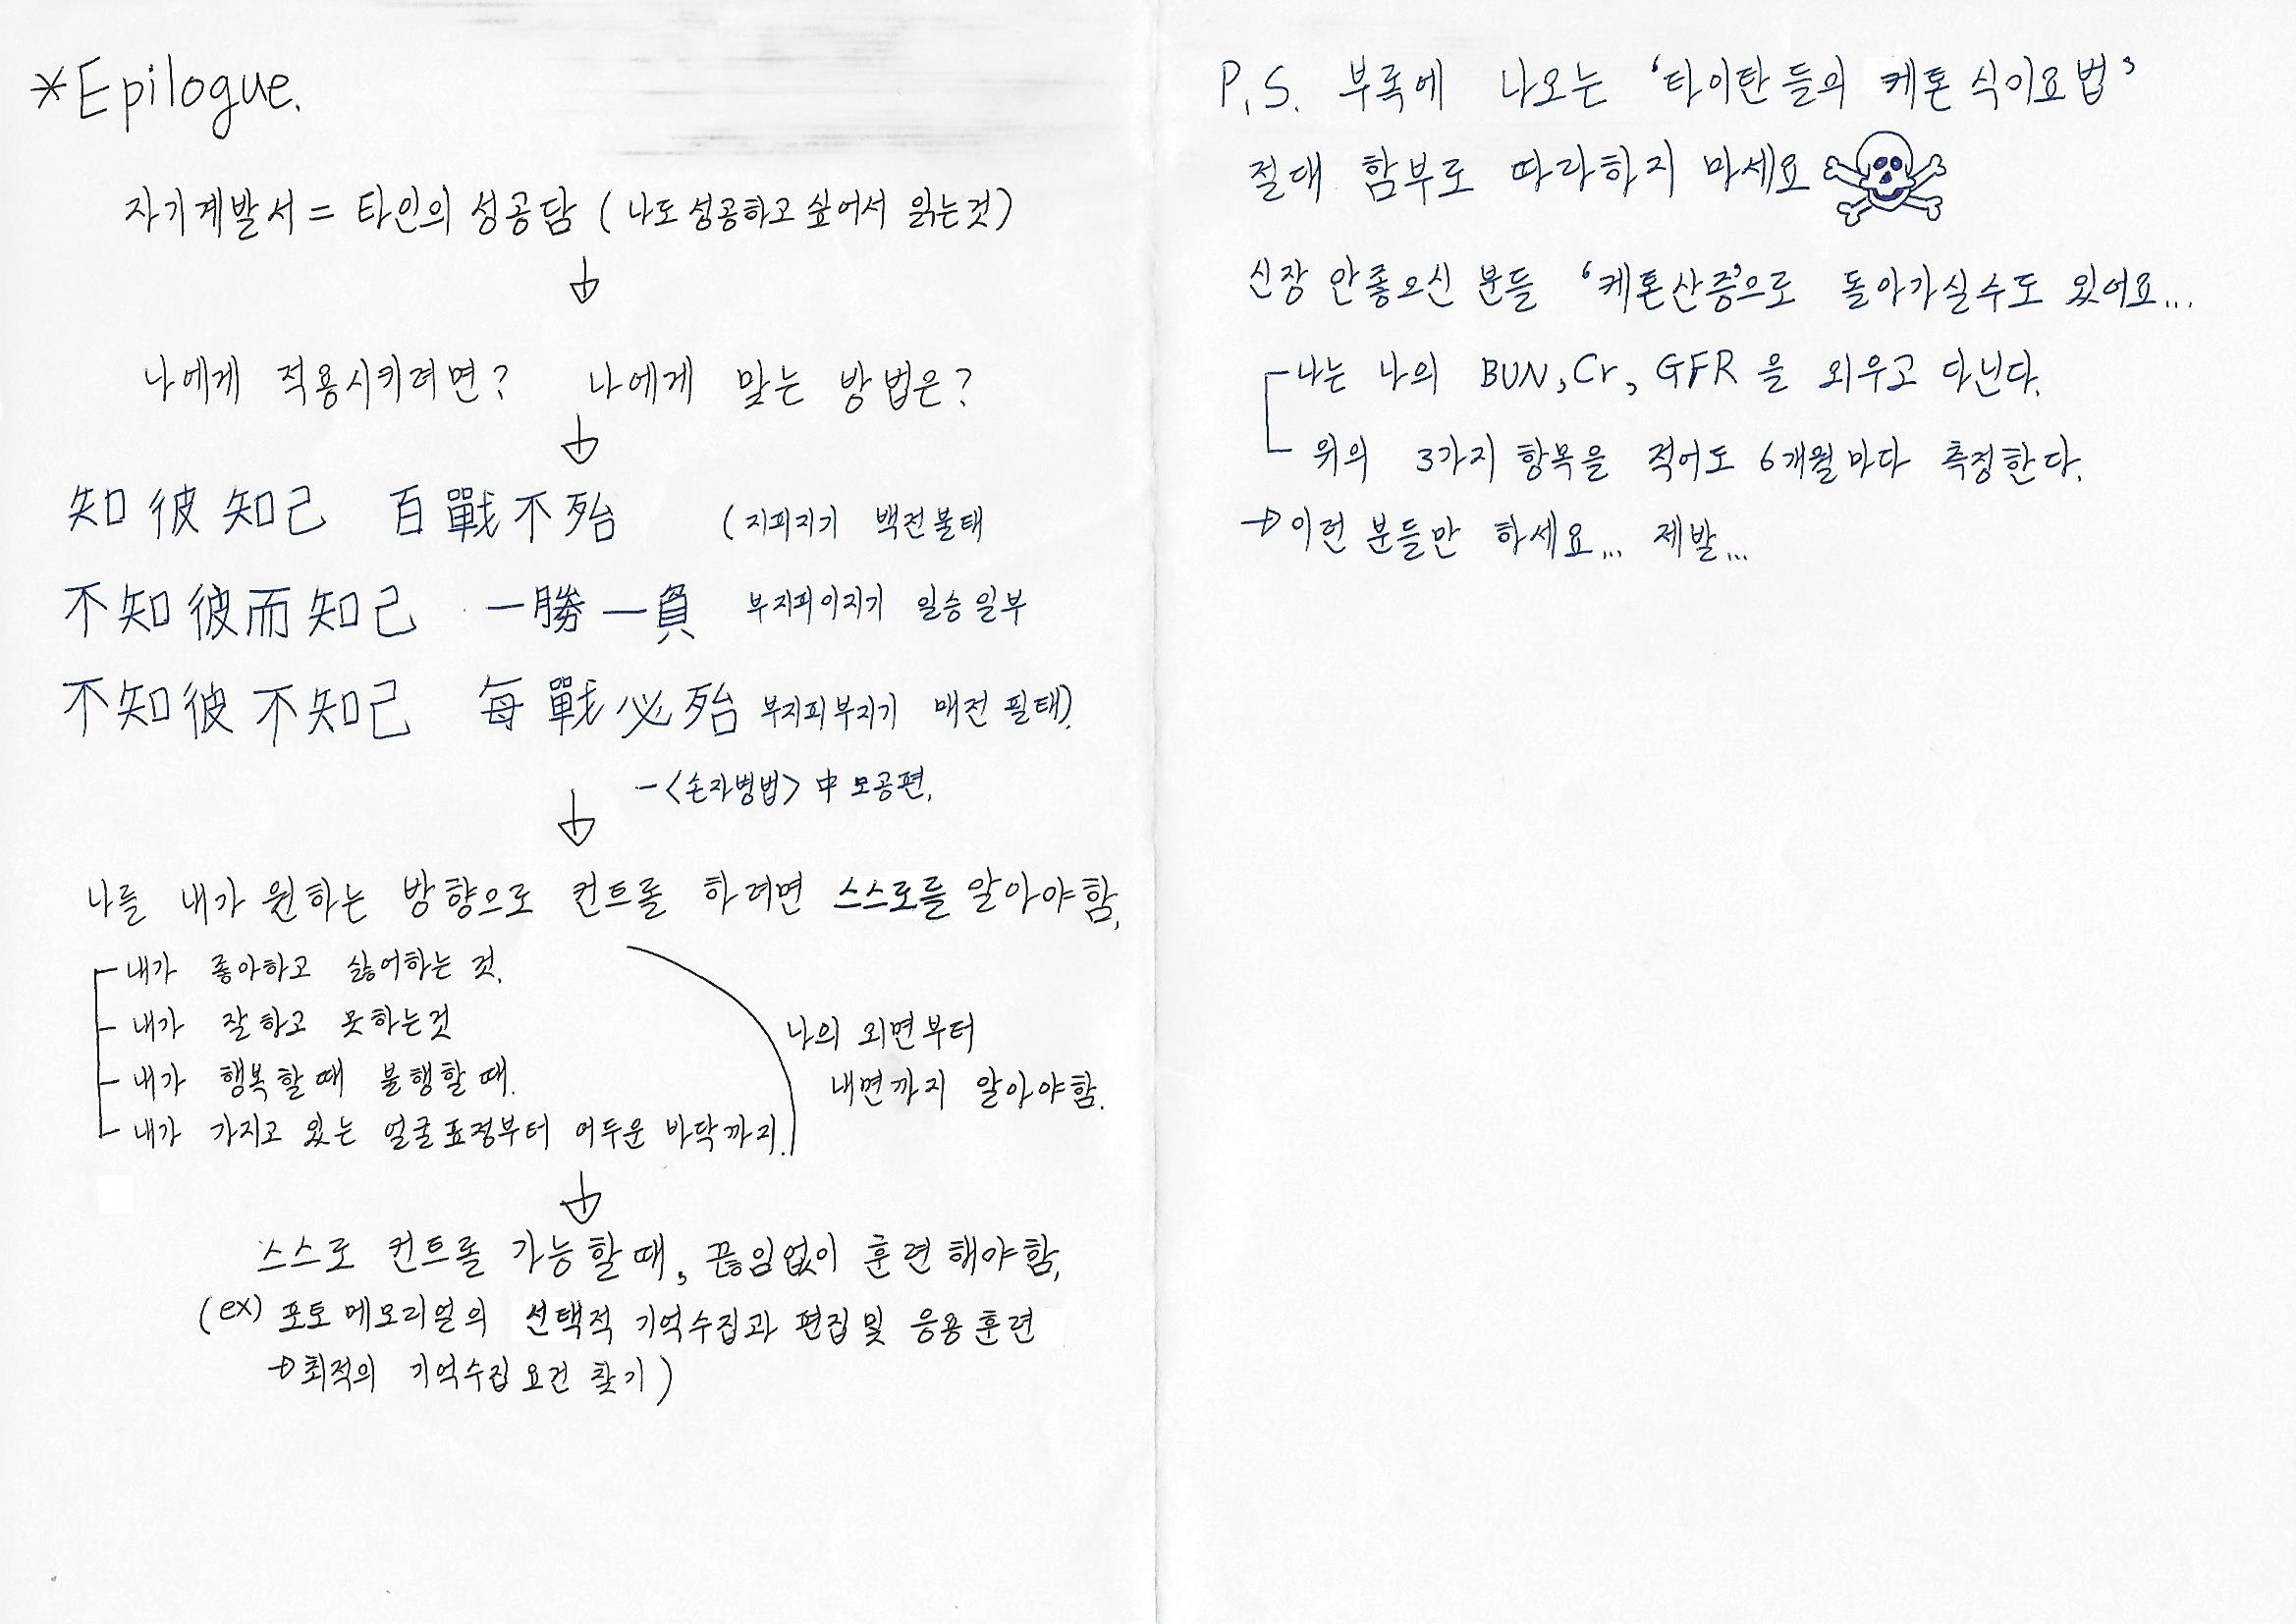 *Epilogue.
자기계발서 = 타인의 성공담 (나도 성공하고 싶어서 읽는것)
나에게 적용시키려면? 나에게 맞는 방법은?
知彼知己 百戰不殆 (지피지기 백전불태
不知彼而知己 一勝一負 부지피이지기 일승일부
不知彼不知己 每戰必殆 부지피부지기 매전필태).
-<손자병법> 中 모공편.
나를 내가 원하는 방향으로 컨트롤 하려면 스스로를 알아야함.
내가 좋아하고 싫어하는 것.
내가 잘하고 못하는것
내가 행복할때 불행할때.
내가 가지고 있는 얼굴표정부터 어두운 바닥까지.
나의 외면부터
내면까지 알아야함.
스스로 컨트롤 가능할때, 끊임없이 훈련해야함.
(ex) 포토메모리얼의 선택적 기억수집과 편집 및 응용훈련
→최적의 기억수집요건 찾기)
P.S. 부록에 나오는 '타이탄들의 케톤식이요법'
절대 함부로 따라하지 마세요
신장 안좋으신 분들 '케톤산증'으로 돌아가실수도 있어요...
나는 나의 BUN, Cr, GFR을 외우고 다닌다.
위의 3가지 항목을 적어도 6개월마다 측정한다.
→이런 분들만 하세요... 제발...